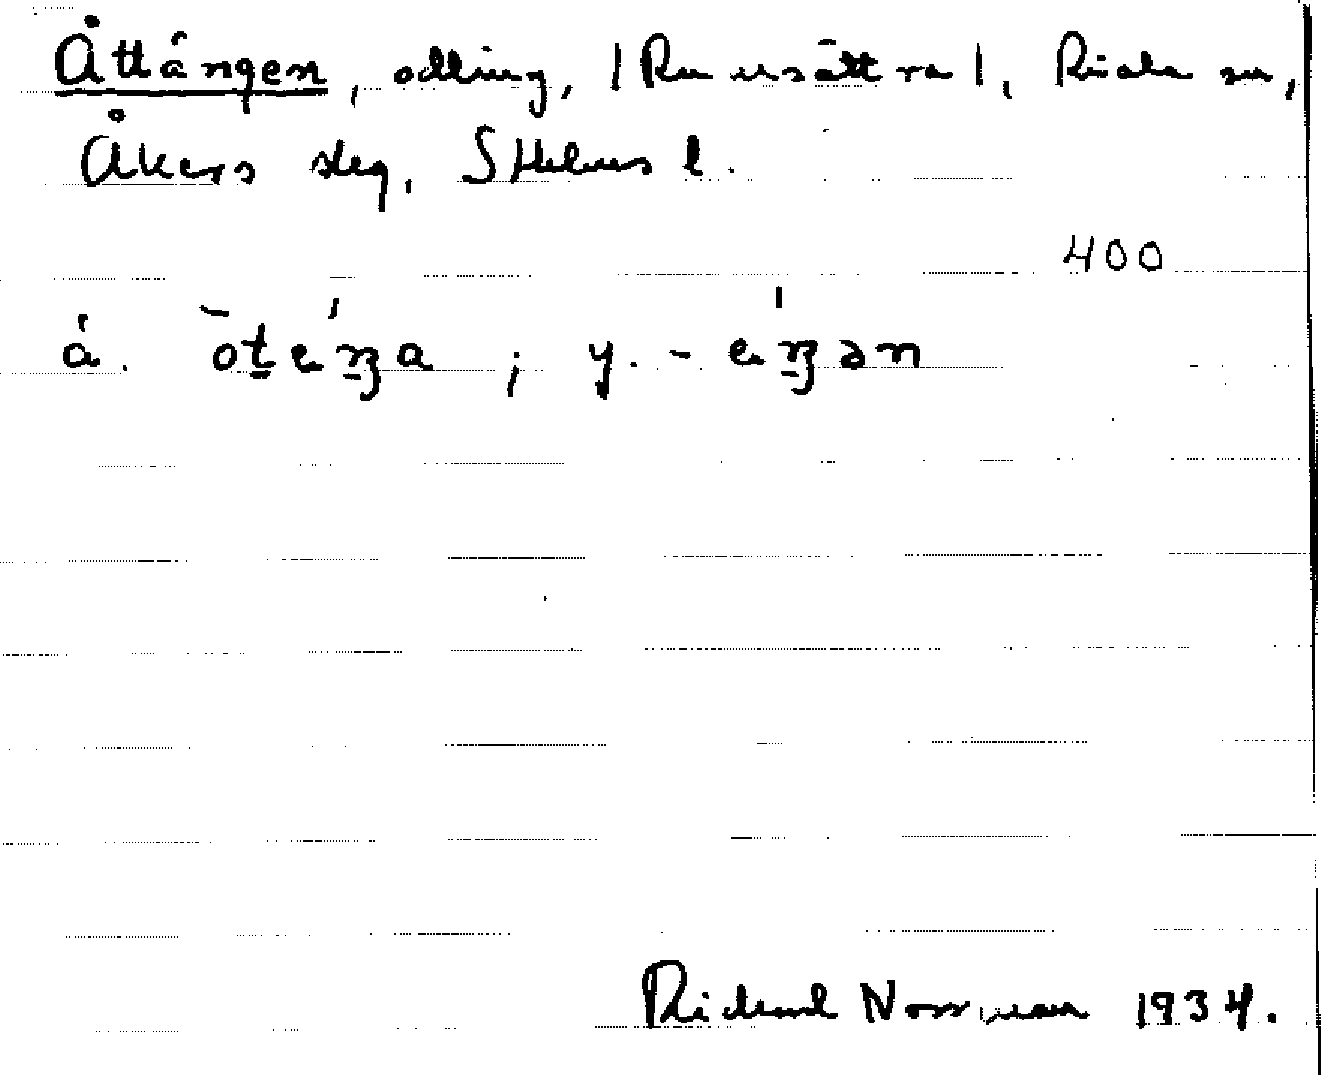 Åttángen, odling, /Rumsättra/, Riala sn,
Åkers skg, Sthlms l.
400
á. ōte̍ŋa ; y. -e̍ŋən
Rickard Norrman 1934.